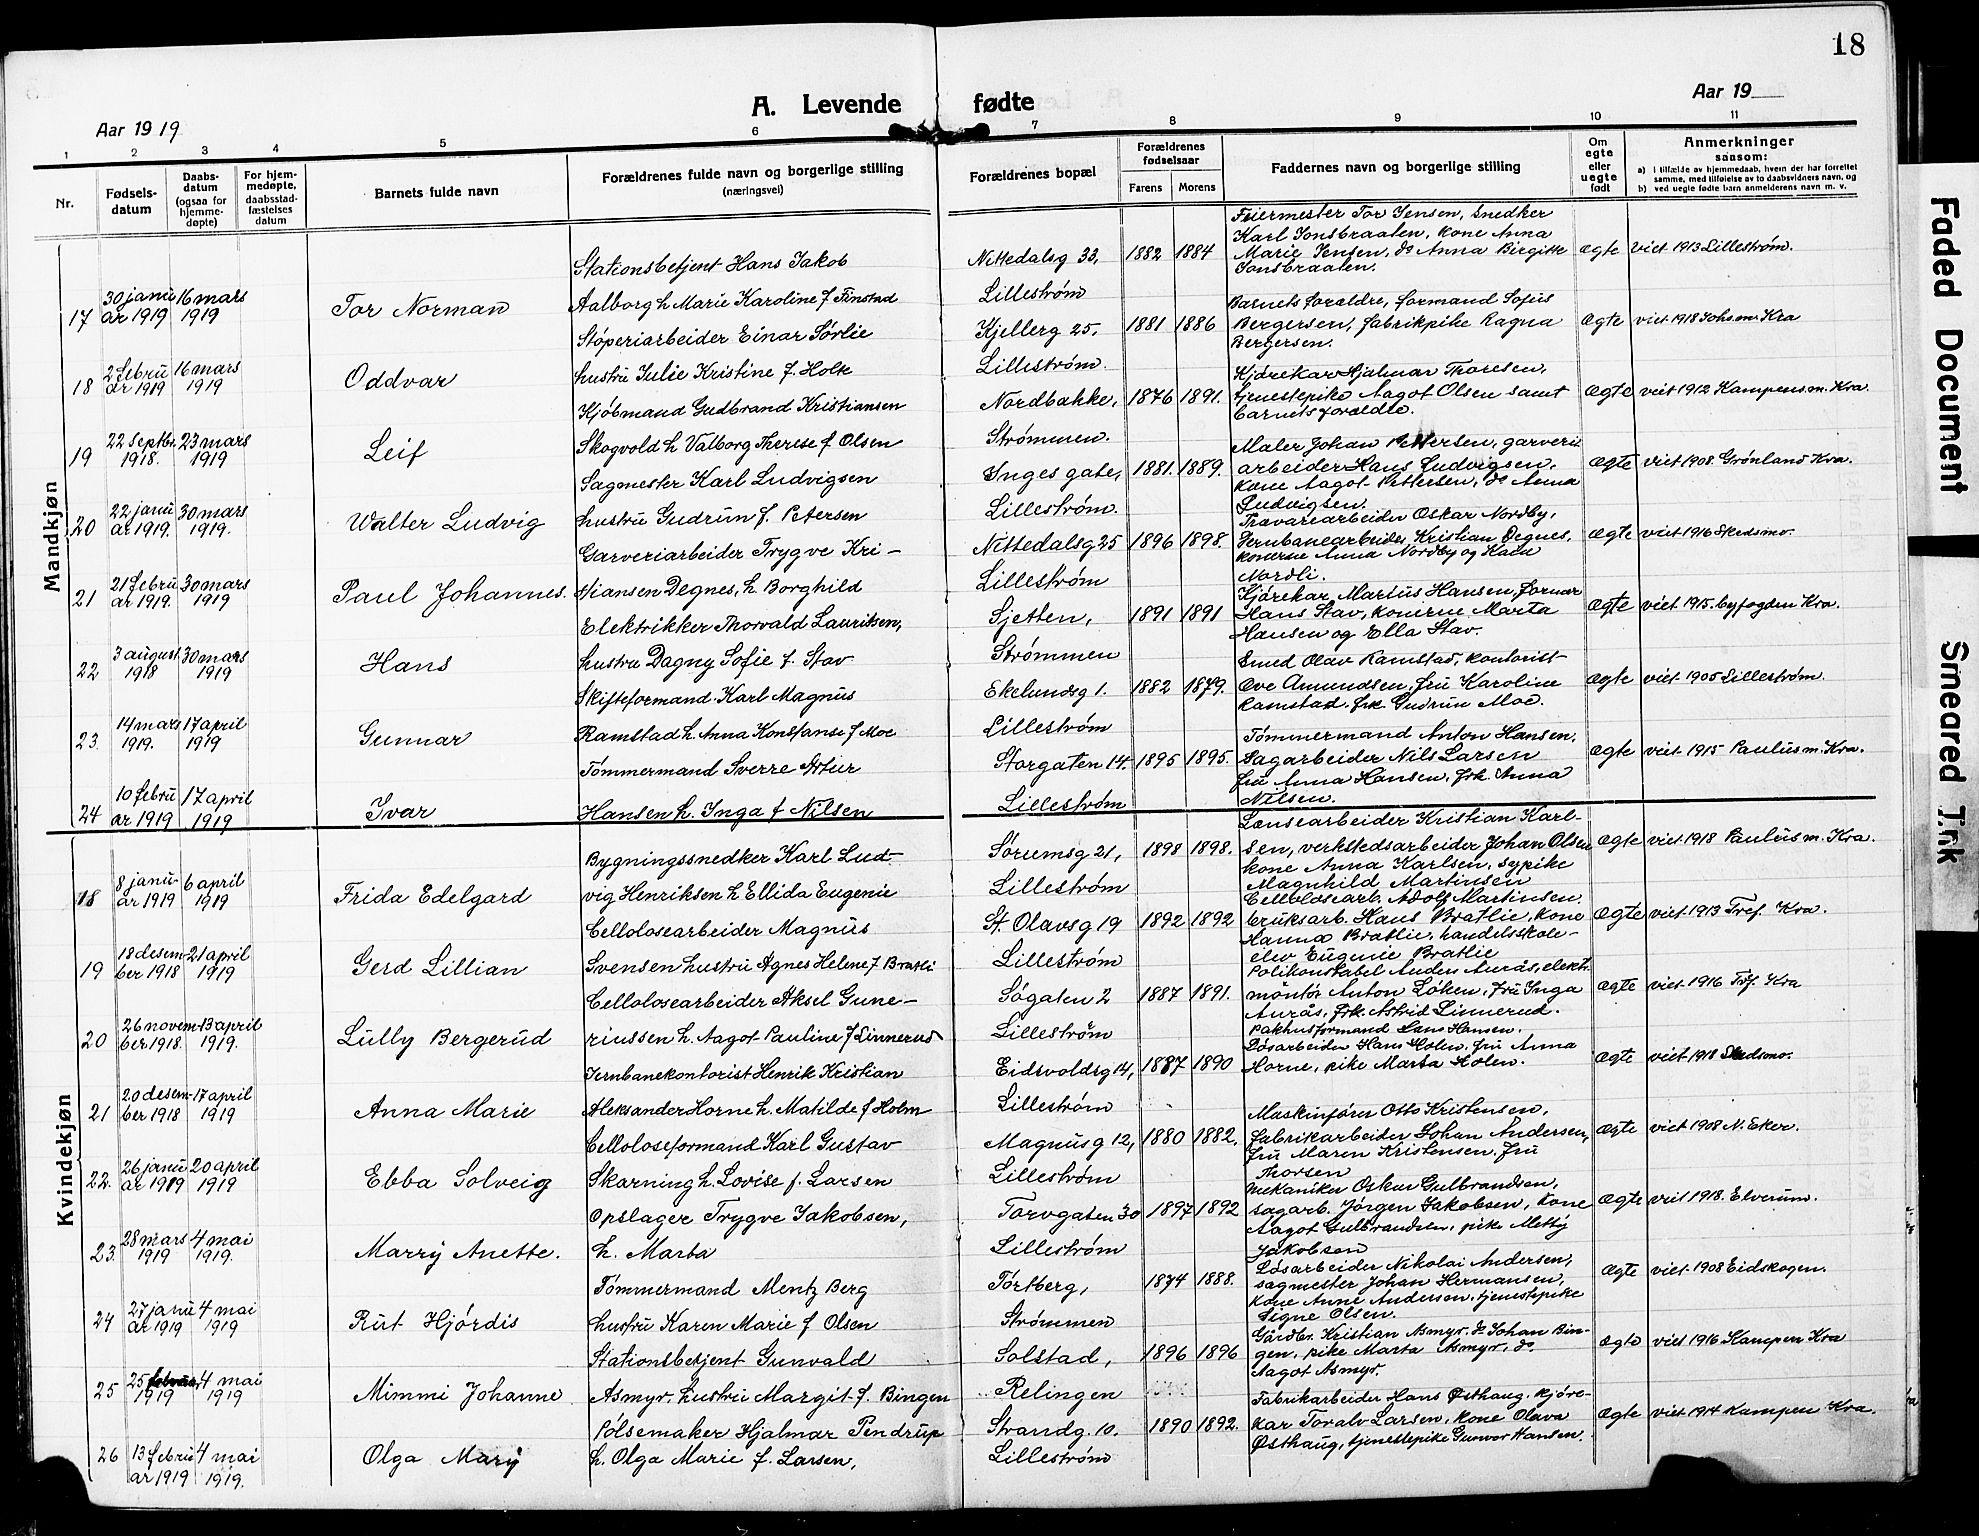 18
A. Levende fødte
Aar 1919
Aar 19
1 2 3 4 5 6 7 8 9 10 11
Nr.
Fødsels-
datum
Daabs-
datum
(ogsaa for
hjemme-
døpte)
For hjem-
medøpte,
daabsstad-
fæstelses
datum
Barnets fulde navn
Forældrenes fulde navn og borgerlige stilling
(næringsvei)
Forældrenes bopæl
Forældrenes
fødselsaar
Farens Morens
Faddernes navn og borgerlige stilling
Om
egte
eller
uegte
født
Anmerkninger
saasom:
a) i tilfælde av hjemmedaab, hvem der har forrettet
samme, med tilføielse av to daabsvidners navn, og
b) ved uegte fødte barn anmelderens navn m. v.
Mandkjøn
17 30 janu 16 mars
ar 1919 1919
Tor Norman
Stationsbetjent Hans Jakob
Aalborg h. Marie Karoline f. Finstad
Nittedalsg 33,
Lillestrøm
1882 1884
Feiermester Tor Jensen, Snedker
Karl Tonsbraaten, kone Anna
Marie Jensen, do Anna Birgitte
Tonsbraaten.
Ægte viet 1913 Lillestrøm.
18 2 febru 16 mars
ar 1919 1919
Oddvar
Støperiarbeider Einar Sørlie
hustru Julie Kristine f. Holt
Kjellerg 25,
Lillestrøm.
1881 1886
Barnets forældre, formand Sofus
Bergersen, fabrikpike Ragna
Bergersen.
Ægte viet 1918 Johs m. Kra
19 22 septbr. 23 mars
1918. 1919
Leif
Kjøbmand Gudbrand Kristiansen
Skogvold h Valborg Therese f. Olsen
Nordbakke,
Strømmen.
1876 1891.
Kjørekar Hjalmar Thoresen,
tjenestepike Aagot Olsen samt
barnets forældre.
Ægte viet 1912 Kampens m. Kra.
20 22 janu 30 mars
ar 1919. 1919.
Walter Ludvig
Sagmester Karl Ludvigsen
hustru Gudrun f. Petersen
Inges gate,
Lillestrøm.
1881. 1889.
Maler Johan Pettersen, garveri
arbeider Hans Ludvigsen,
kone Aagot Pettersen, do Anna
Ludvigsen.
Ægte viet 1908. Grønland Kra.
21 21 febru 30 mars
ar 1919. 1919
Paul Johannes.
Garveriarbeider Trygve Kri-
stiansen Degnes, h. Borghild
Nittedalsg 25
Lillestrøm
1896 1898.
Travarearbeider Oskar Nordby,
Jernbanearbeider Kristian Degnes,
konerne Anna Nordby og Karn
Nordli.
Ægte viet 1916 Skedsmo.
22 3 august 30 mars
1918 1919
Hans
Elektrikker Thorvald Lauritsen,
hustru Dagny Sofie f. Stav
Sjetten,
Strømmen
1891 1891
Kjørekar Martius Hansen, formar
Hans Stav, konerne Marta
Hansen og Ella Stav.
Ægte viet 1915. byfogden Kra.
23. 14 mars 17 april
1919. 1919
Gunnar
Skifteformand Karl Magnus
Ramstad h. Anna Konstanse f. Moe
Ekelundsg 1.
Lillestrøm
1882 1879.
Smed Olav Ramstad, kontorist
Ove Amundsen, fru Karoline
Ramstad, frk. Gudrun Moe.
Ægte viet 1905 Lillestrøm.
24 10 febru 17 april
ar 1919 1919
Ivar
Tømmermand Sverre Artur
Hansen h. Inga f Nilsen
Storgaten 14.
Lillestrøm
1895 1895.
Tømmermand Anton Hansen,
Sagarbeider Nils Larsen
fru Anna Hansen, frk. Anna
Nilsen.
Ægte viet 1915 Paulus m. Kra.
Kvindekjøn
18 8 janu- 6 april
ar 1919 1919
Frida Edelgard
Bygningssnedker Karl Lud-
vig Henriksen h. Ellida Eugenie
Sørumsg 21,
Lillestrøm
1898 1898.
Lænsearbeider Kristian Karl-
sen, verkstedsarbeider Johan Olsen
kone Anna Karlsen, sypike
Magnhild Martinsen
Ægte viet 1918 Paulus m. Kra.
19 18 desem- 21 april
ber 1918 1919
Gerd Lillian
Cellolosearbeider Magnus
Svensen hustru Agnes Helene f. Bratli
St. Olavsg 19
Lillestrøm
1892 1892
Cellolosearb. Adolf Martinsen.
bruksarb. Hans Bratlie, kone
Hanna Bratlie, handelsskole-
elev Eugenie Bratlie
Ægte viet 1913 Tref. Kra.
20 26 novem- 13 april
ber 1918. 1919.
Lully Bergerud
Cellolosearbeider Aksel Gune-
riussen h. Aagot Pauline f Linnerud
Søgaten 2
Lillestrøm
1887 1891.
Politikonstabel Anders Aurås, elektr.
montør Anton Løken, fru Inga
Aurås, frk. Astrid Linnerud.
Ægte viet 1916 Trf. Kra
21 20 desem- 17 april
ber 1918 1919
Anna Marie
Jernbanekontorist Henrik Kristian
Aleksander Horne h. Matilde f Holm
Eidsvoldsg 14,
Lillestrøm
1887 1890
Pakhusformand Hans Hansen.
Løsarbeider Hans Holen, fru Anna
Horne, pike Marta Holen.
Ægte viet 1918 Skedsmo.
22. 26 janu 20 april
ar 1919 1919
Ebba Solveig
Celloloseformand Karl Gustav
Skarning h. Lovise f. Larsen
Magnus g 12,
Lillestrøm
1880 1882.
Maskinfører Otto Kristensen,
fabrikarbeider Johan Andersen,
fru Maren Kristensen, fru
Thorsen
Ægte viet 1908 N. Eker.
23. 28 mars 4 mai
1919 1919.
Marry Anette.
Opslager Trygve Jakobsen,
h. Marta
Torvgaten 30
Lillestrøm
1897 1892
Mekaniker Oskar Gulbrandsen,
sagarb. Jørgen Jakobsen, kone
Aagot Gulbrandsen, pike Methy
Jakobsen
Ægte viet 1918. Elverum.
24 27 janu 4 mai
ar 1919 1919
Rut Hjørdis
Tømmermand Mentz Berg
hustru Karen Marie f Olsen
Tortberg,
Strømmen
1874 1888.
Løsarbeider Nikolai Andersen,
sagmester Johan Hermansen,
kone Anne Andersen, tjenestepike
Signe Olsen.
Ægte viet 1908 Eidskogen.
25 25 4 mai
1919 1919
Mimmi Johanne
Stationsbetjent Gunvald
Asmyr, hustru Margit f. Bingen
Solstad,
Relingen
1896 1896
Gårdbr. Kristian Asmyr, do Johan Bin-
gen, pike Marta Asmyr, do
Aagot Asmyr.
Ægte viet 1916 Kampen Kra
26 13 febru 4 mai
ar 1919 1919.
Olga Mary
Pølsemaker Hjalmar Pendrup
h. Olga Marie f. Larsen,
Strandg. 10.
Lillestrøm
1890 1892.
Fabrikarbeider Hans Østhaug, kjøre-
kar Toralv Larsen, kone Olava
Østhaug, tjenestepike Gunvor Hansen.
Ægte viet 1914 Kampen Kra.
Faded Document
Smeared Ink